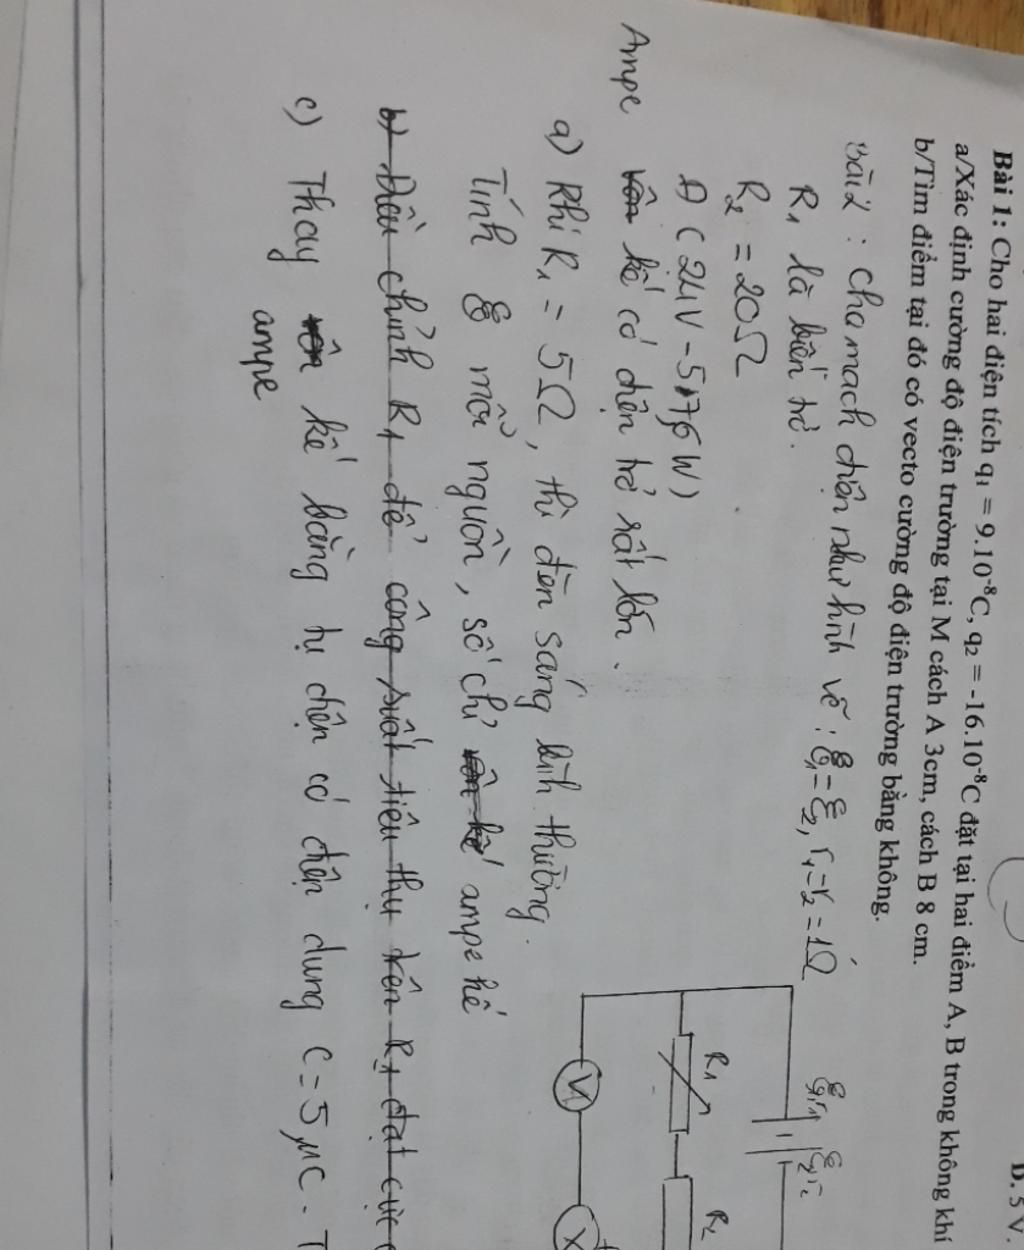 D. 5 V.
Bài 1: Cho hai điện tích q₁ = 9.10⁻⁸C, q₂ = -16.10⁻⁸C đặt tại hai điểm A, B trong không khí
a/Xác định cường độ điện trường tại M cách A 3cm, cách B 8 cm.
b/Tìm điểm tại đó có vecto cường độ điện trường bằng không.
Bài 2: Cho mạch điện như hình vẽ: ℰ₁=ℰ₂, r₁=r₂=1Ω
R₁ là biến trở.
R₂ = 20Ω
Đ (24V - 5,76W)
Ampe vôn kế có điện trở rất lớn.
a) Khi R₁ = 5Ω, thì đèn sáng bình thường.
Tính ℰ mỗi nguồn, số chỉ vôn kế ampe kế
b) Điều chỉnh R₁ để công suất tiêu thụ trên R₁ đạt cực
c) Thay vôn kế bằng tụ điện có điện dung C = 5μC.
ampe
ℰ₁r₁ ℰ₂r₂
R₁ R₂
V X